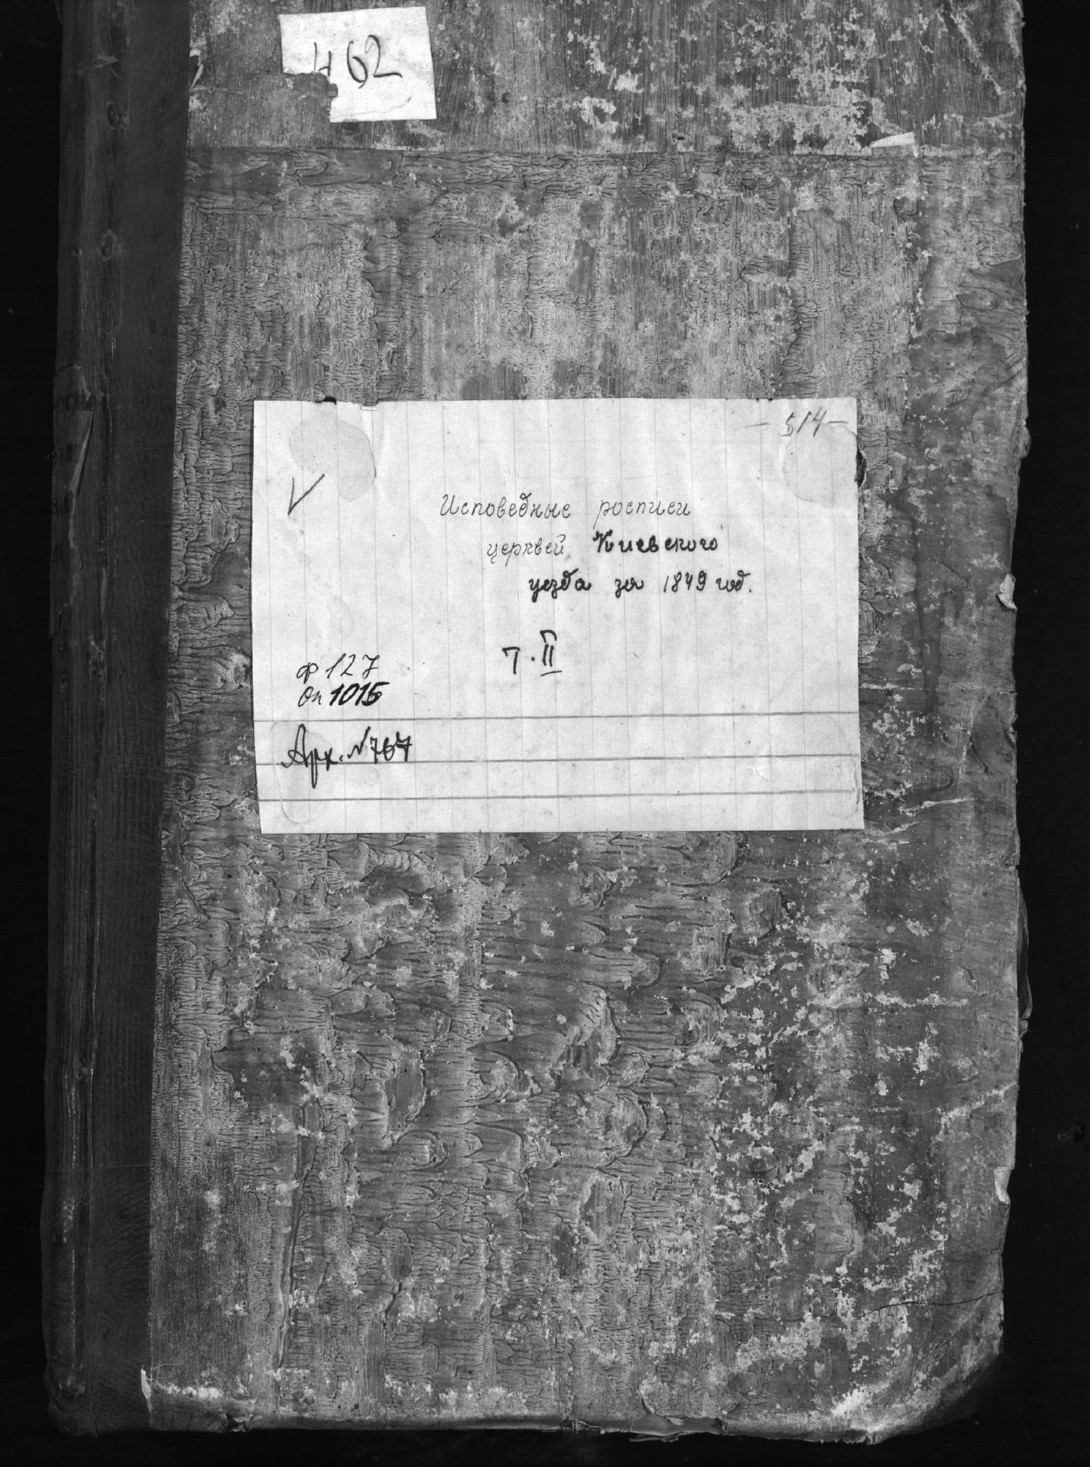 462
- 514-
V
Исповедные росписи
церквей Киевского
уезда за 1849 год.
т. II
Ф 127
Оп 1015
Арх. №767